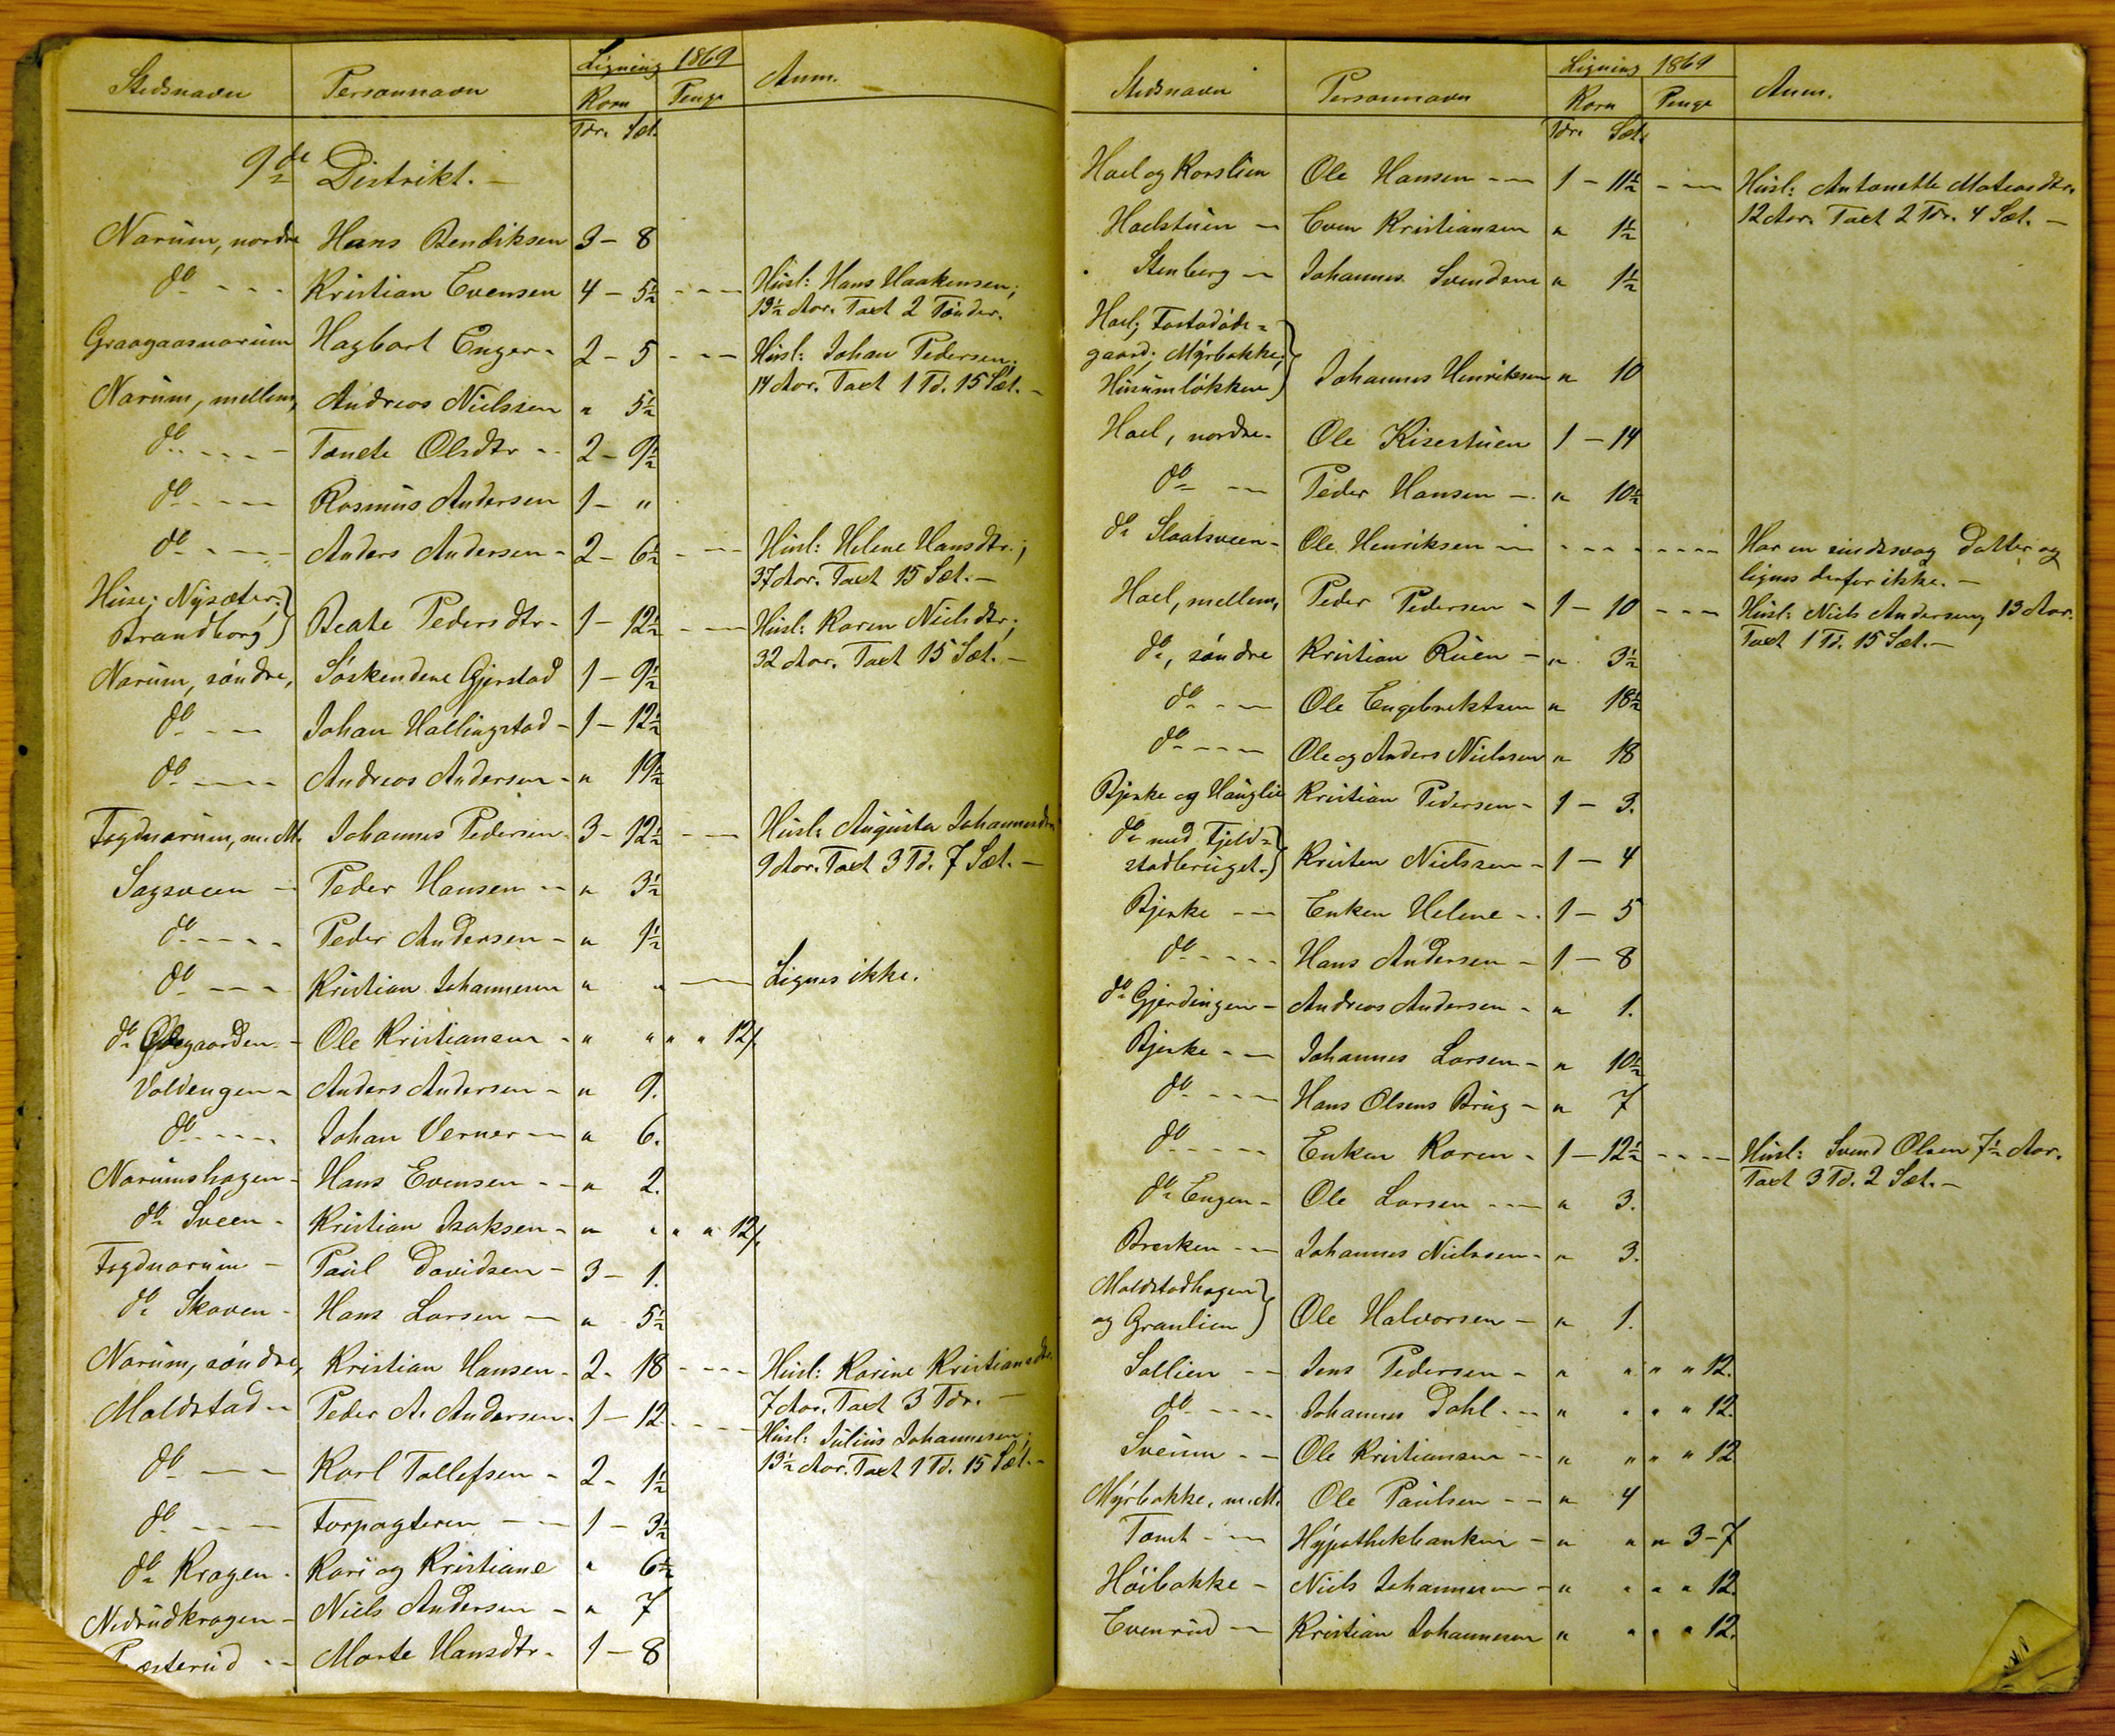 Stedsnavn Personnavn Ligning 1869 Anm.
Korn Penge
Tdr. Sæt.
9de Distrikt. —
Narum, nordre Hans Bendiksen 3 – 8
do - - - Kristian Evensen 4 – 5½ - - - Husl: Hans Haakensen,
13½ Aar. Taxt 2 Tønder.
Graagaasnarum Hagbart Enger - 2 – 5 - - - Husl: Johan Pedersen,
14 Aar. Taxt 1 Td. 15 Sæt. -
Narum, mellem, Andreas Nielssen " 5½
do - - - Tanete Olsdtr - - 2 – 9½
do - - - Rasmus Andersen 1 – "
do - - - Anders Andersen - 2 – 6½ - - - Husl: Helene Hansdtr.;
37 Aar. Taxt 15 Sæt. —
Huse; Nysæter;
Brandborg) Beate Pedersdtr - 1 – 12½ - - - Husl: Karen Nielsdtr;
32 Aar. Taxt 15 Sæt. —
Narum, søndre, Søskendene Gjerstad 1 – 9½
do - - - Johan Hallingstad - 1 – 12½
do - - - Andreas Andersen - " 19½
Fogdnarum, m. M. Johannes Pedersen - 3 – 12½ - - - Husl: Augusta Johannesdtr
9 Aar. Taxt 3 Td. 7 Sæt. —
Sagsveen - Peder Hansen - - " 3½
do - - - - Peder Andersen - " 1½
do - - - Kristian Johannesen " " — Lignes ikke.
do Ødegaarden - Ole Kristiansen - " " " " 12/.
Voldengen - Anders Andersen - " 9.
do - - - - Johan Verner — " 6.
Narumshagen - Hans Evensen - - " 2.
do Sveen - Kristian Isaksen - " " " " 12/.
Fogdnarum - Paul Davidsen - 3 – 1.
do Skaven - Hans Larsen — " 5½
Narum, søndre, Kristian Hansen - 2 - 18 - - - Husl: Karine Kristiansdtr.
7 Aar. Taxt 3 Tdr. —
Maldstad - - Peder A. Andersen - 1 – 12 - - - Husl: Julius Johannesen;
13½ Aar. Taxt 1 Td. 15 Sæt. -
do - - - Karl Tollefsen - 2 - 1½
do - - - Forpagteren - - 1 – 3½
do Kragen - Kari og Kristiane " 6½
Nedrudkragen - Niels Andersen - " 7
Præsterud - - Marte Hansdtr - 1 – 8
Stedsnavn Personnavn Ligning 1869 Anm.
Korn Penge
Tdr. Sæt.
Hael og Korslien Ole Hansen - - - 1 – 11½ - - - Husl: Antonette Mateasdtr.
12 Aar. Taxt 2 Tdr. 4 Sæt. —
Haelstuen - Even Kristiansen " 1½
Stenberg - Johannes Svendsen " 1½
Hael; Fastadøde=
gaard; Myrbakke;
Husumløkken) Johannes Henriksen " 10
Hael, nordre - Ole Kisestuen 1 – 14
do - - Peder Hansen - " 10½
do Slaatsveen - Ole Henriksen - - - - - - - - - Har en sindssvag Datter og
lignes derfor ikke. —
Hael, mellem, Peder Pedersen - 1 – 10 - - - Husl: Niels Andersen, 13 Aar.
Taxt 1 Td. 15 Sæt. —
do, søndre Kristian Ruen - " 3½
do - - - Ole Engebrektsen " 18½
do - - - Ole og Anders Nielssen " 18
Bjerke og Hauglie Kristian Pedersen - 1 – 3.
do med Fjeld=
stadbruget.) Kristen Nielssen - 1 – 4
Bjerke - - Enken Helene - - 1 – 5
do - - - - Hans Andersen - 1 – 8
do Gjerdingen - Andreas Andersen - " 1.
Bjerke - - Johannes Larsen - " 10½
do - - - Hans Olsens Brug - " 7
do - - - - Enken Karen - 1 – 12½ - - - - Husl: Svend Olsen 7½ Aar.
Taxt 3 Td. 2 Sæt. —
do Engen - Ole Larsen - - - " 3.
Bresken - - Johannes Nielssen - " 3.
Maldstadhagen
og Granlien) Ole Halvorsen - " 1.
Sollien - - Jens Pedersen - " " " " 12.
do - - - - Johannes Dahl - - " " " " 12.
Sveum - - Ole Kristiansen - - " " " " 12
Myrbakke, m. M. Ole Paulsen - - " 4
Tomt - - Hypothekbanken - " " " 3 – 7
Høibakke - Niels Johannesen - " " " " 12
Evenrud - Kristian Johannesen " " " " 12.